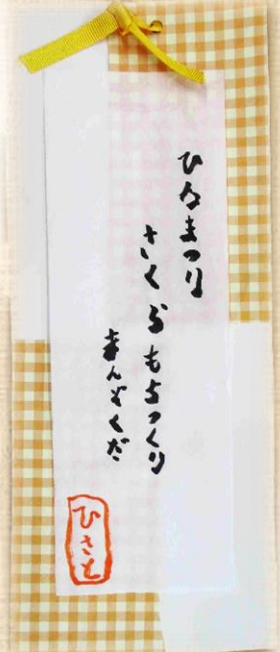 ひなまつり
さくらもちつくり
まんぞくだ
ひさえ